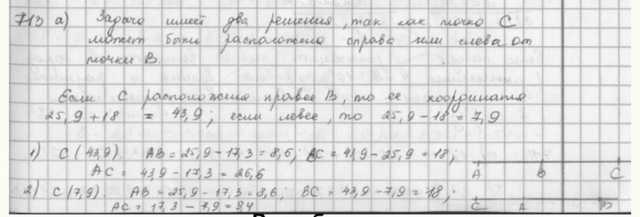 713 а) Задача имеет два решения, так как точка С
может быть расположена справа или слева от
точки В.
Если С расположена правее В, то ее координата
25,9 + 18 = 43,9; если левее, то 25,9 - 18 = 7,9
1) С (43,9). АВ = 25,9 - 17,3 = 8,6; ВС = 43,9 - 25,9 = 18;
АС = 43,9 - 17,3 = 26,6
А В С
2) С (7,9). АВ = 25,9 - 17,3 = 8,6; ВС = 43,9 - 7,9 = 18;
АС = 17,3 - 7,9 = 9,4
С А В